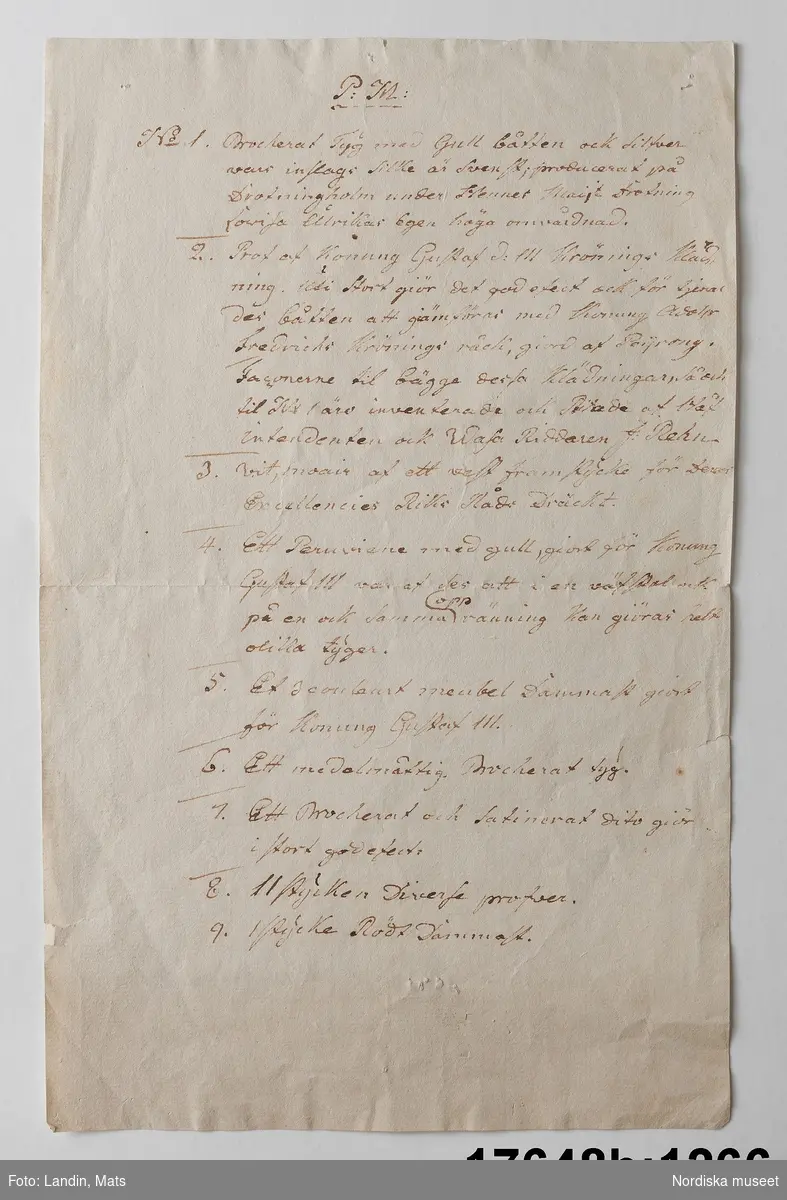 P: M:
No 1. Brocherat Tyg med Gull båtten och Silfver
vars inslags Silke är Svenst; producerat på
Drotningholm under Hennes Maijt Drotning
Lovisa Ellrikas Egen höga omvårdnad.
2. Prof af Konung Gustaf d: III Krönings Kläd,
ning. uti Stort giör det god efect och för tjena
des båtten att gämföras med Konung Adolph
Fredrichs Krönings räck, giord af Peijrong.
Façonerne til bägge dessa Klädningar, så och
til No 1 äro inventerade och Ritade af Håf
intendenten och Wasa Riddaren J: Rehn
3. vit, moair af ett vest framstycke för Deras
Excellencies Riks Råds Dräckt.
4. Ett Peruviene med gull, giort för Konung
Gustaf III af des att i en väfstol och
på en och Samma opp ränning Kan giöras helt
olilla tyger.
5. Et 3 couleurt meubel Dammast giort
för Konung Gustaf III.
6. Ett medelmåttig. Brocherat tyg.
7. Ett Brocherat och Satinerat dito giör
i stort god efect:
8. 11 stycken Diverse profver.
9. 1 stycke Rödt Dammast.
17648b:1266
Foto: Landin, Mats
Nordiska museet